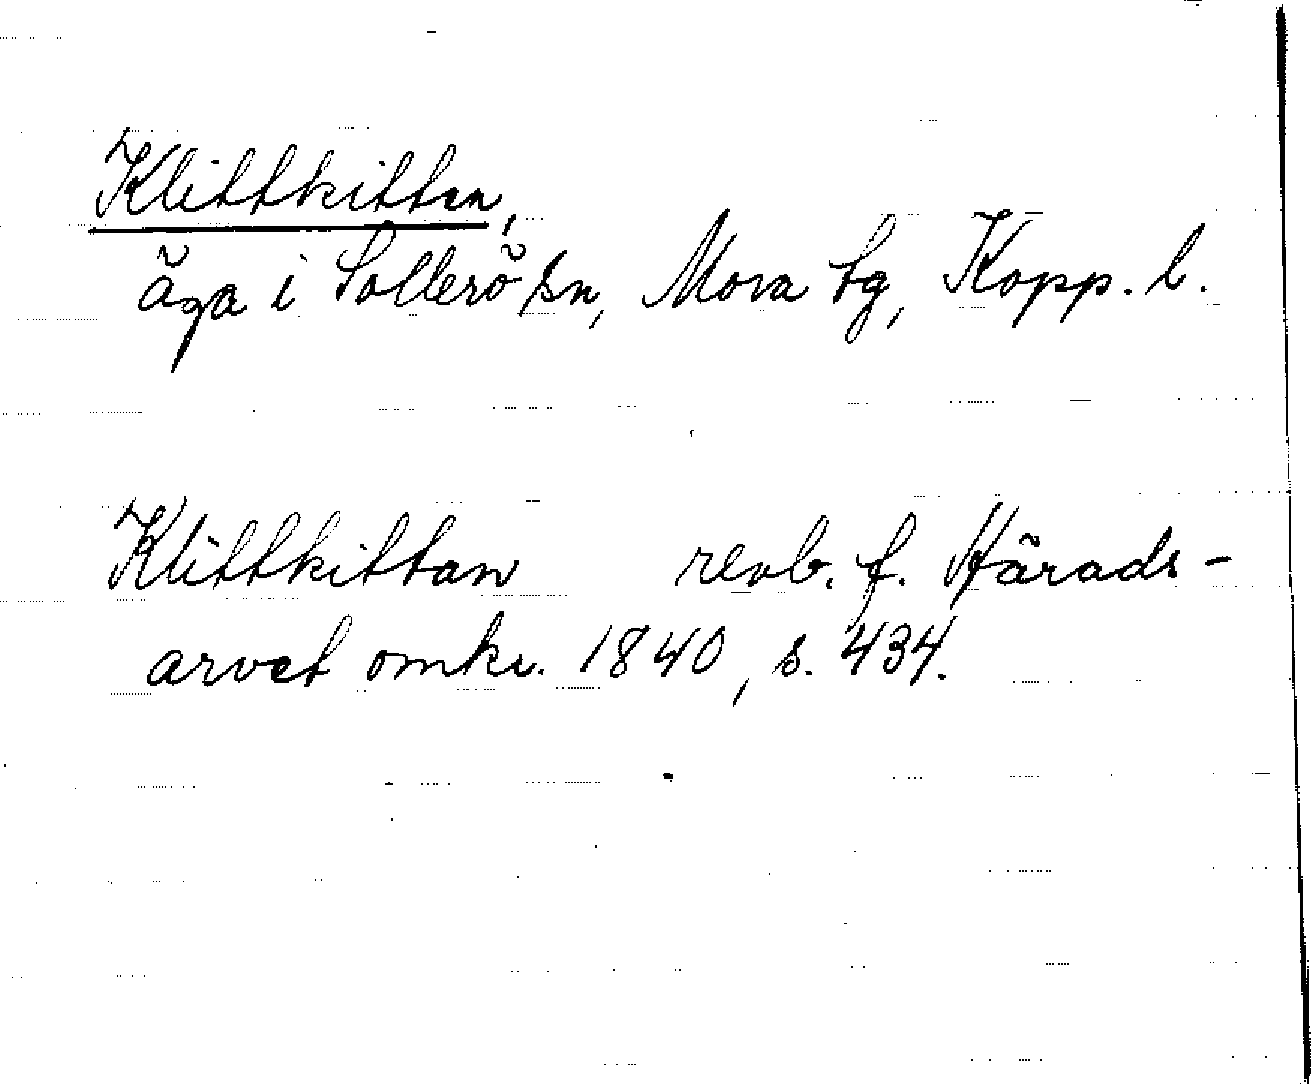 Klittkittan,
äga i Sollerö sn, Mora tg, Kopp. l.
Klittkittan revb. f. Härads-
arvet omkr. 1840, s. 434.